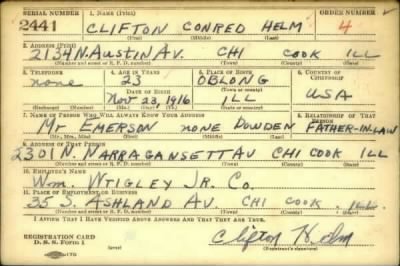 SERIAL NUMBER 1. NAME (Print) ORDER NUMBER
2441 CLIFTON CONRED HELM 4
(First) (Middle) (Last)
2. ADDRESS (Print)
2134 N. AUSTIN AV. CHI COOK ILL
(Number and street or R. F. D. number) (Town) (County) (State)
3. TELEPHONE 4. AGE IN YEARS 5. PLACE OF BIRTH 6. COUNTRY OF CITIZENSHIP
none 23 OBLONG
DATE OF BIRTH (Town or county)
Nov 23, 1916 ILL USA
(Exchange) (Number) (Mo.) (Day) (Yr.) (State or country)
7. NAME OF PERSON WHO WILL ALWAYS KNOW YOUR ADDRESS 8. RELATIONSHIP OF THAT PERSON
Mr EMERSON none DOWDEN FATHER-IN-LAW
(Mr., Mrs., Miss) (First) (Middle) (Last)
9. ADDRESS OF THAT PERSON
2301 N NARRAGANSETT AV CHI COOK ILL
(Number and street or R. F. D. number) (Town) (County) (State)
10. EMPLOYER'S NAME
Wm. WRIGLEY JR. Co.
11. PLACE OF EMPLOYMENT OR BUSINESS
35 S. ASHLAND AV CHI COOK
(Number and street or R. F. D. number) (Town) (County) (State)
I AFFIRM THAT I HAVE VERIFIED ABOVE ANSWERS AND THAT THEY ARE TRUE.
REGISTRATION CARD
D. S. S. Form 1 Clifton Helm
(Registrant's signature)